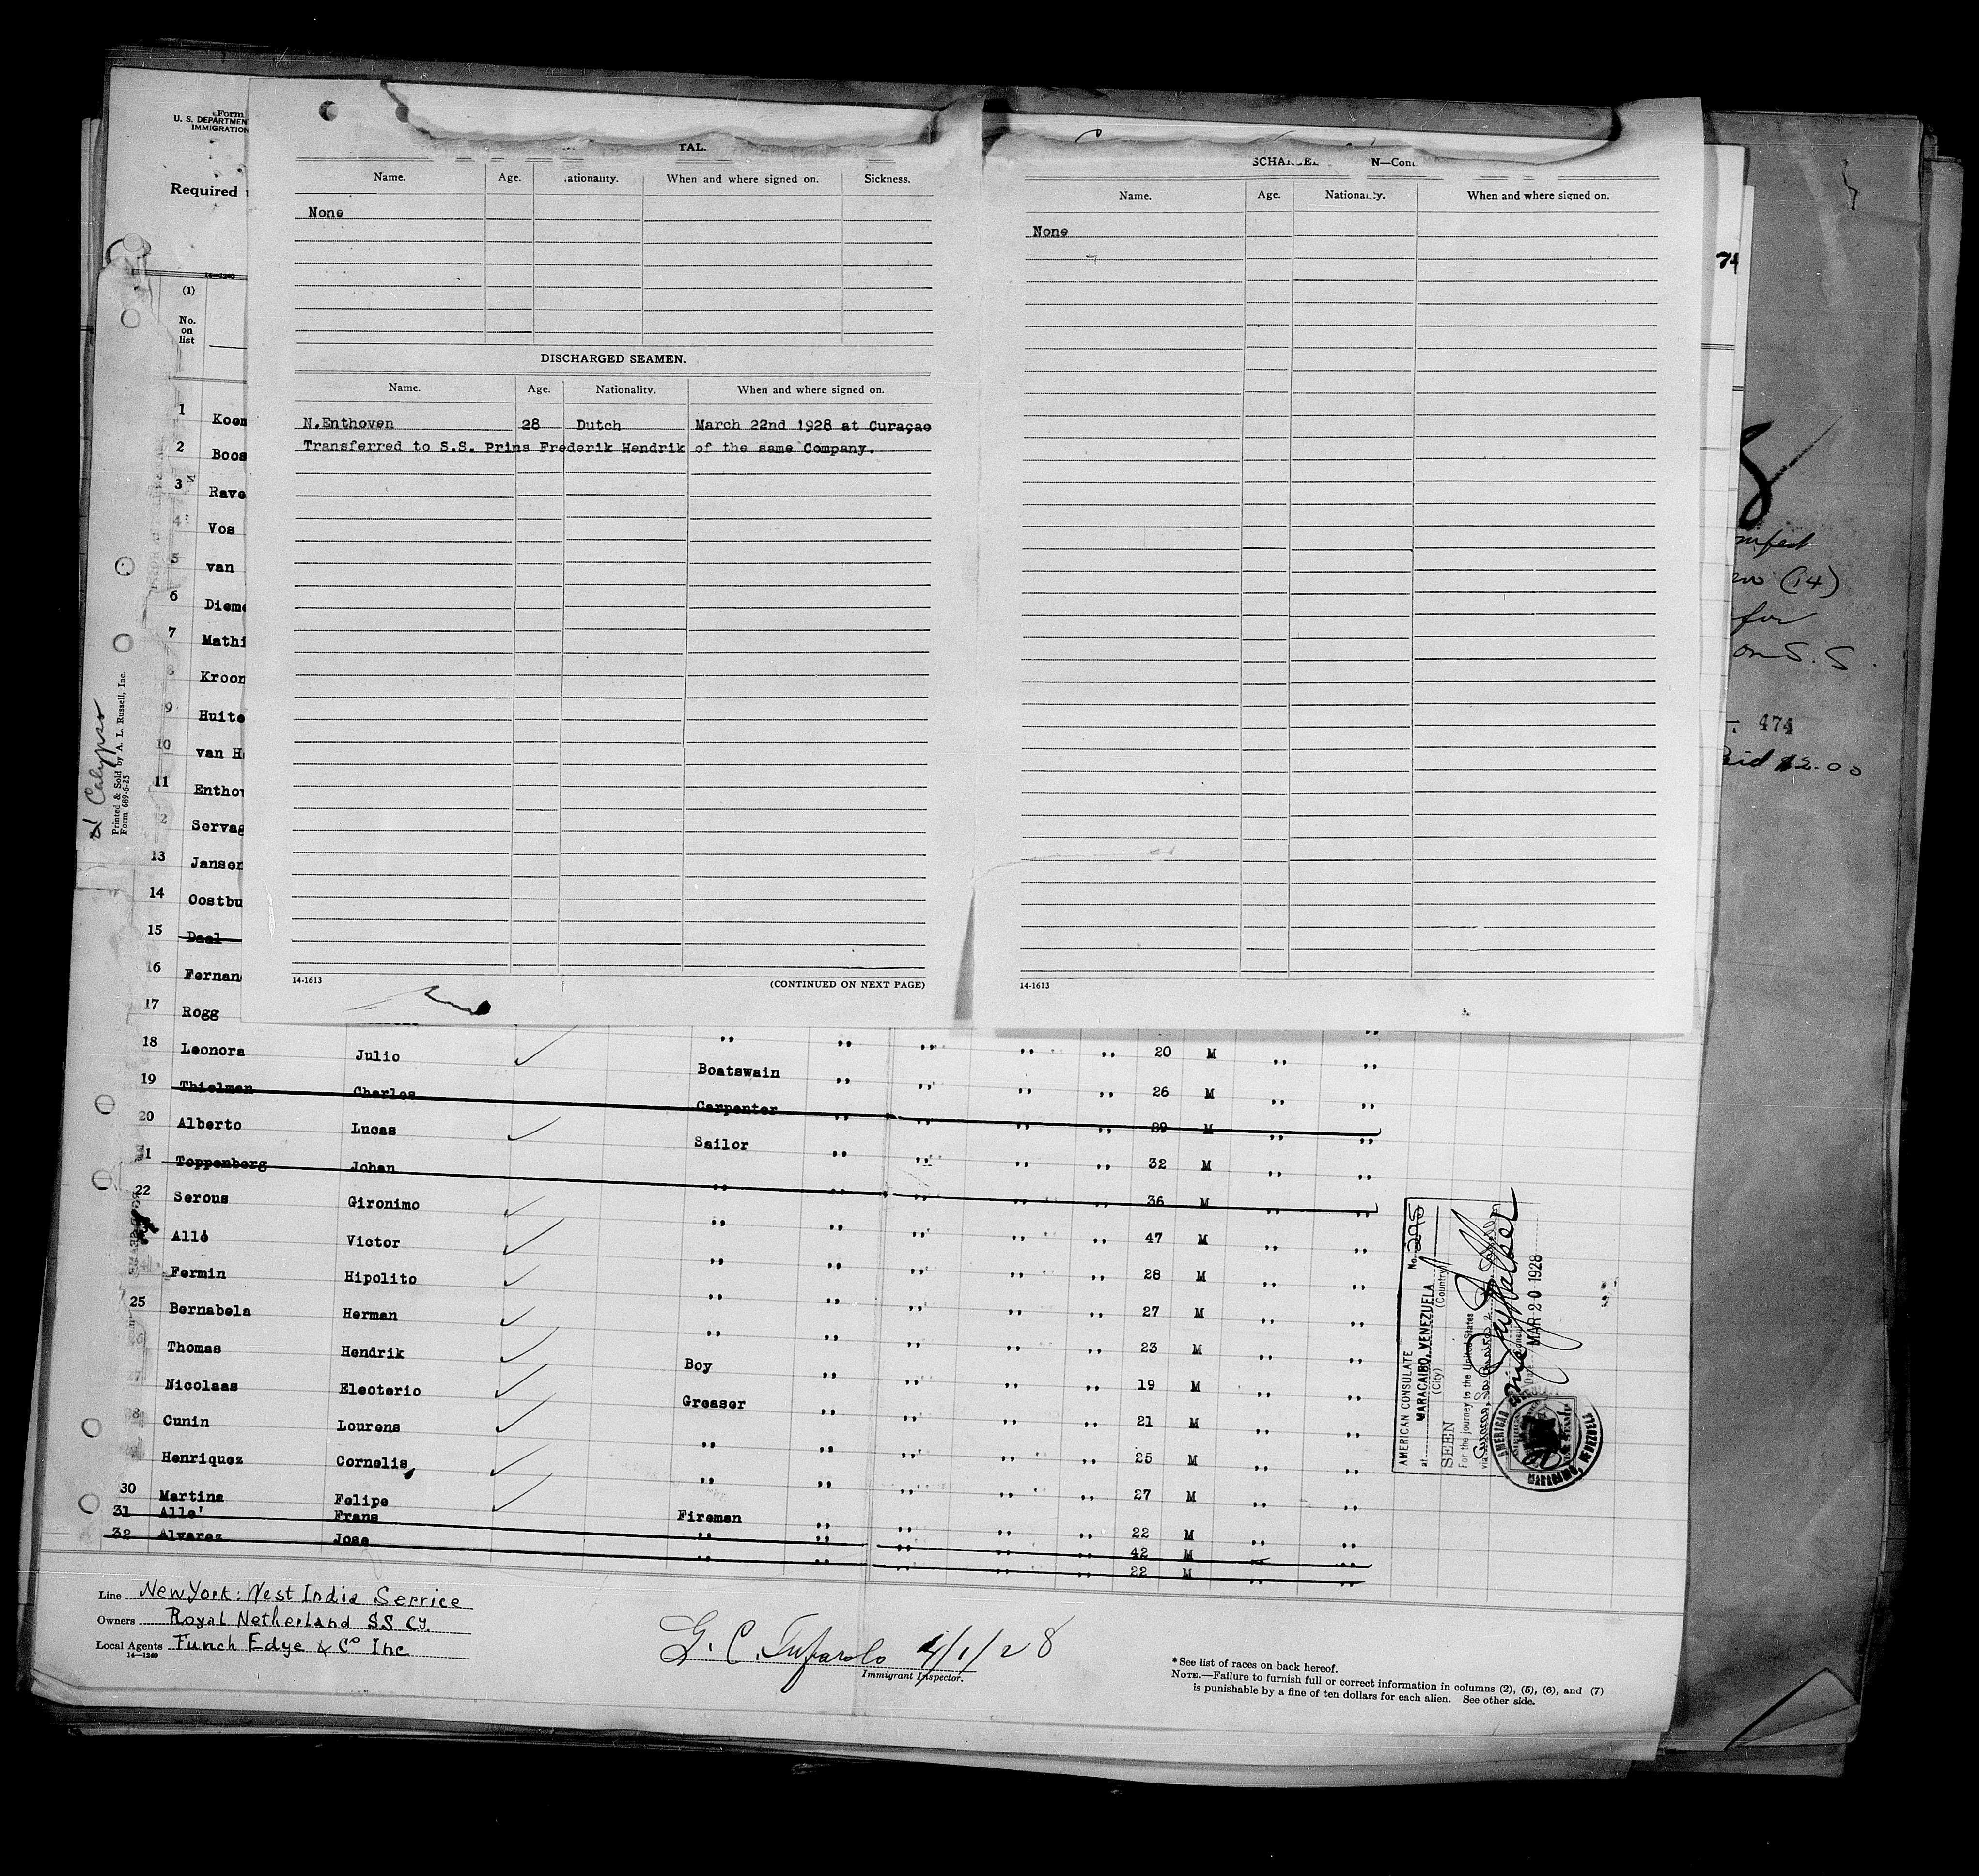 Form
U. S. DEPARTMENT
IMMIGRATION
Required
14—1240
(1)
No.
on
list
TAL.
Name. Age. Nationality. When and where signed on. Sickness.
None
DISCHARGED SEAMEN.
Name. Age. Nationality. When and where signed on.
N.Enthoven 28 Dutch March 22nd 1928 at Curaçao
Transferred to S.S. Prins Frederik Hendrik of the same Company.
14-1613 (CONTINUED ON NEXT PAGE)
N—Cont.
Name. Age. Nationality. When and where signed on.
None
14-1613
74
(14)
for
on S. S.
474
$2.00
Calypso
Printed & Sold by A. L. Russell, Inc.
Form 689-6-25
1 Koem
2 Boos
3 Rave
4 Vos
5 van
6 Dieme
7 Mathi
8 Kroon
9 Huite
10 van H
11 Enthov
2 Servag
13 Jansen
14 Oostbu
15 Daal
16 Fernan
17 Rogg
18 Leonora Julio ,, ,, ,, ,, ,, 20 M ,, ,,
19 Thielman Charles Boatswain ,, ,, ,, ,, 26 M ,, ,,
20 Alberto Lucas Carpenter ,, ,, ,, ,, 29 M ,, ,,
1 Toppenberg Johan Sailor ,, ,, ,, ,, 32 M ,, ,,
22 Serous Gironimo ,, ,, ,, ,, ,, 36 M ,, ,,
Allé Victor ,, ,, ,, ,, ,, 47 M ,, ,,
Fermin Hipolito ,, ,, ,, ,, ,, 28 M ,, ,,
25 Bernabela Herman ,, ,, ,, ,, ,, 27 M ,, ,,
Thomas Hendrik ,, ,, ,, ,, ,, 23 M ,, ,,
Nicolaas Eleoterio Boy ,, ,, ,, ,, 19 M ,, ,,
8 Cunin Lourens Greaser ,, ,, ,, ,, 21 M ,, ,,
Henriquez Cornelis ,, ,, ,, ,, ,, 25 M ,, ,,
30 Martina Felipe ,, ,, ,, ,, ,, 27 M ,, ,,
31 Alle' Frans Fireman ,, ,, ,, ,, 22 M ,, ,,
32 Alvarez Jose ,, ,, ,, ,, ,, 42 M ,, ,,
,, ,, ,, ,, ,, 22 M ,, ,,
AMERICAN CONSULATE No. 295
at MARACAIBO, VENEZUELA
(City) (Country)
SEEN
For the journey to the United States
via
MAR 20 1928
AMERICAN
MARACAIBO, VENEZUELA
Line New York: West India Service
Owners Royal Netherland SS Cy.
Local Agents Funch Edye & Co Inc
14—1240
G. C. 4/1/28
Immigrant Inspector.
*See list of races on back hereof.
NOTE.—Failure to furnish full or correct information in columns (2), (5), (6), and (7)
is punishable by a fine of ten dollars for each alien. See other side.